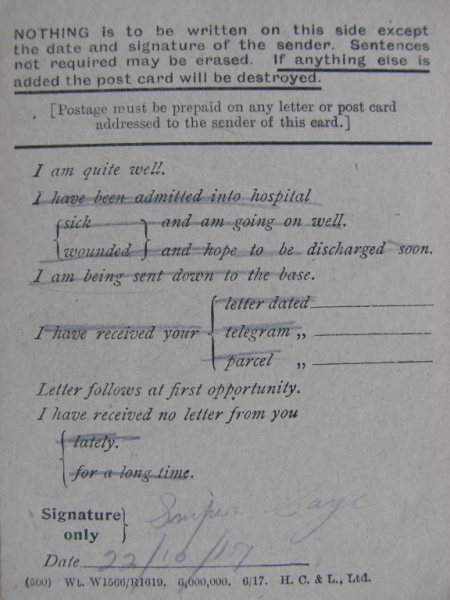 NOTHING is to be written on this side except
the date and signature of the sender. Sentences
not required may be erased. If anything else is
added the post card will be destroyed.
[Postage must be prepaid on any letter or post card
addressed to the sender of this card.]
I am quite well.
I have been admitted into hospital
sick and am going on well.
wounded and hope to be discharged soon.
I am being sent down to the base.
letter dated
I have received your telegram „
parcel „
Letter follows at first opportunity.
I have received no letter from you
lately.
for a long time.
Signature
only
Date 22/10/17
(500) Wt. W1566/R1619. 6,000,000. 6/17. H. C. & L., Ltd.